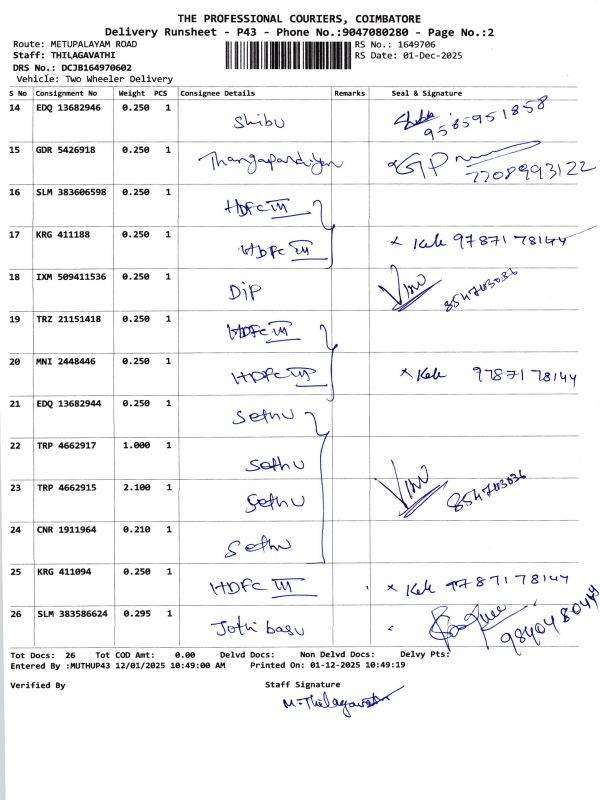 THE PROFESSIONAL COURIERS, COIMBATORE
Delivery Runsheet - P43 - Phone No.:9047080280 - Page No.:2
Route: METUPALAYAM ROAD RS No.: 1649706
Staff: THILAGAVATHI RS Date: 01-Dec-2025
DRS No.: DCJB164970602
Vehicle: Two Wheeler Delivery
S No Consignment No Weight PCS Consignee Details Remarks Seal & Signature
14 EDQ 13682946 0.250 1 Shibu 9585951858
15 GDR 5426918 0.250 1 Thangapandiyan 7708993122
16 SLM 383606598 0.250 1 HDFC III
17 KRG 411188 0.250 1 HDFC III x Kek 9787178144
18 IXM 509411536 0.250 1 Dip Vino
19 TRZ 21151418 0.250 1 HDFC III
20 MNI 2448446 0.250 1 HDFC III x Kek 9787178144
21 EDQ 13682944 0.250 1 Sethu
22 TRP 4662917 1.000 1 Sethu
23 TRP 4662915 2.100 1 Sethu Vino
24 CNR 1911964 0.210 1 Sethu
25 KRG 411094 0.250 1 HDFC III x Kek 9787178144
26 SLM 383586624 0.295 1 Jothi basu
Tot Docs: 26 Tot COD Amt: 0.00 Delvd Docs: Non Delvd Docs: Delvy Pts:
Entered By :MUTHUP43 12/01/2025 10:49:00 AM Printed On: 01-12-2025 10:49:19
Verified By Staff Signature
M. Thilagavathi